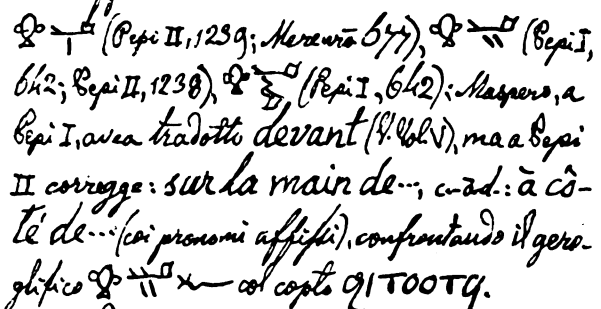 (Pepi II, 1239; Merenrā 677), (Pepi I,
642; Pepi II, 1238), (Pepi I, 642): Maspero, a
Pepi I, avea tradotto devant (V. Vol. V), ma a Pepi
II corregge: sur la main de..., c-ad.: à cô-
té de... (coi pronomi affissi), confrontando il gero-
glifico col copto ϩⲓⲧⲟⲟⲧϥ.